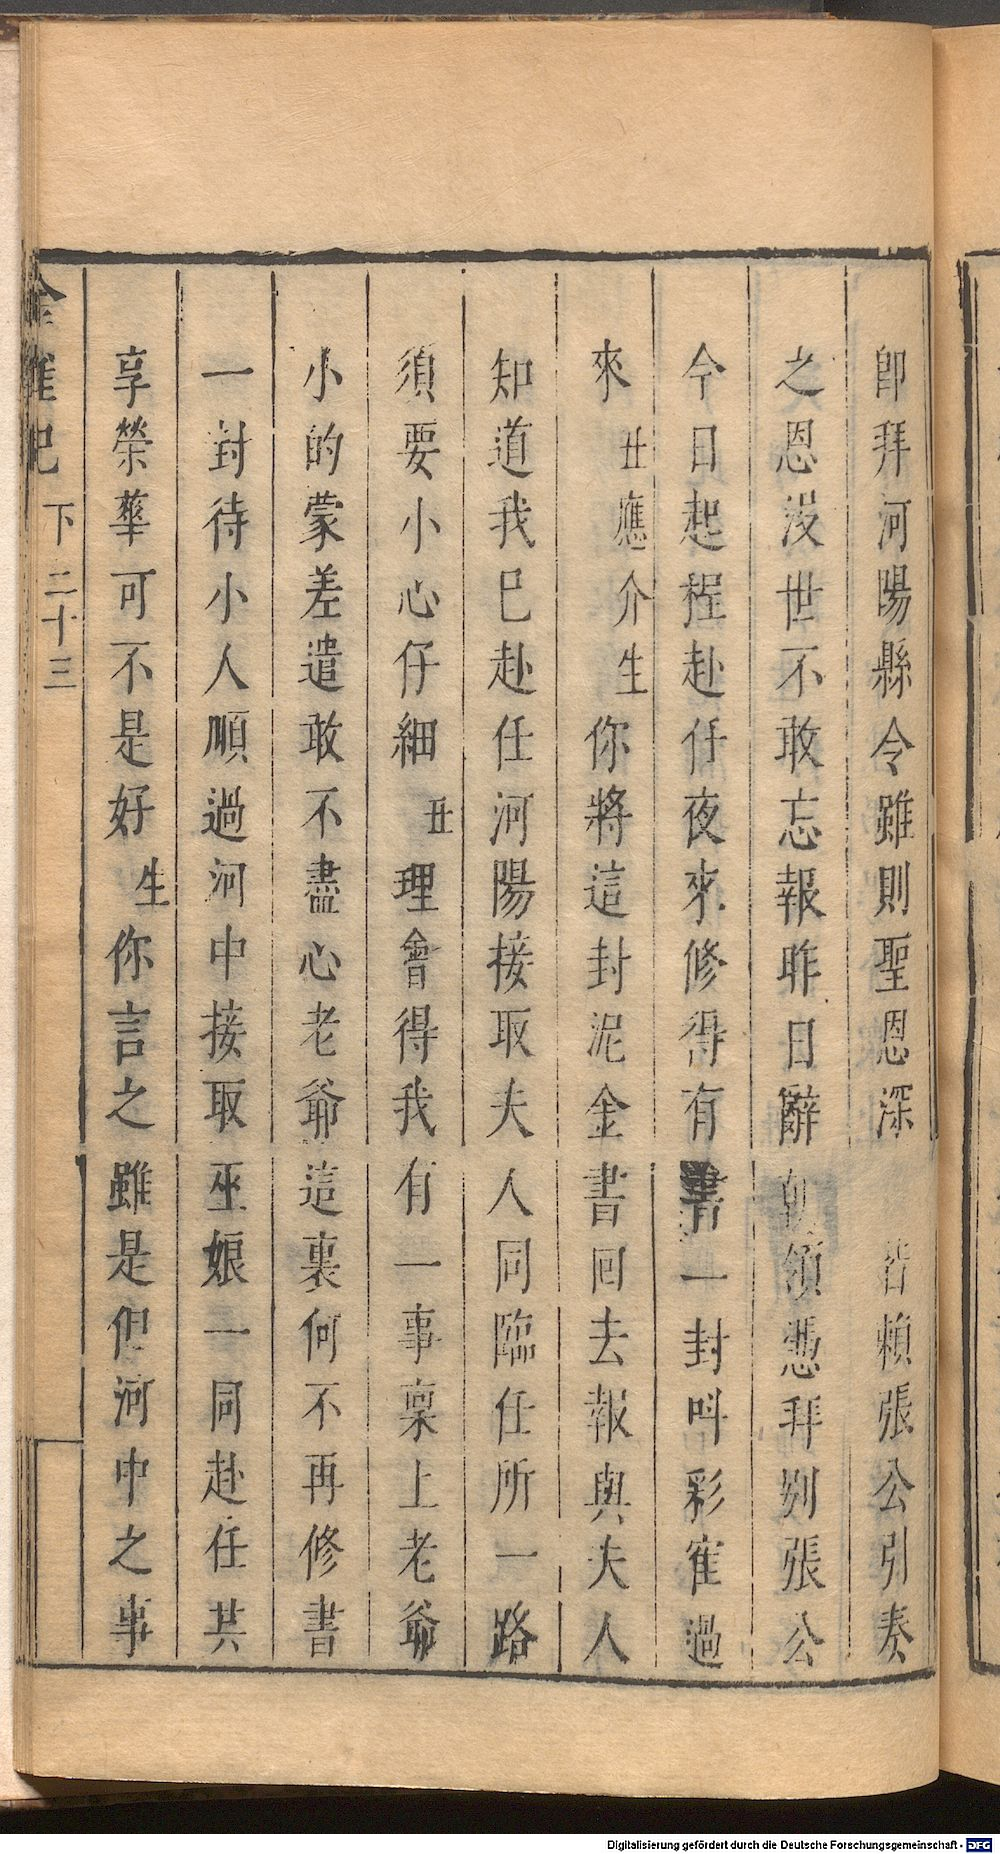 即拜河陽縣令雖則聖恩深 皆賴張公引奏
之恩沒世不敢忘報昨日辭朝領憑拜別張公
今日起程赴任夜來修得有書一封呌彩雀過
來丑應介生你將這封泥金書回去報與夫人
知道我已赴任河陽接取夫人同臨任所一路
須要小心仔細丑理會得我有一事禀上老爺
小的蒙差遣敢不盡心老爺這裏何不再修書
一封待小人順過河中接取巫娘一同赴任共
享榮華可不是好生你言之雖是但河中之事
金雀記 下 二十三
Digitalisierung gefördert durch die Deutsche Forschungsgemeinschaft - DFG